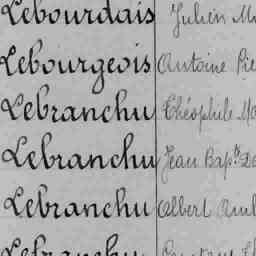 Lebourdais Julien
Lebourgeois Antoine
Lebranchu Théophile
Lebranchu Jean Bap.te
Lebranchu Albert
Lebranchu